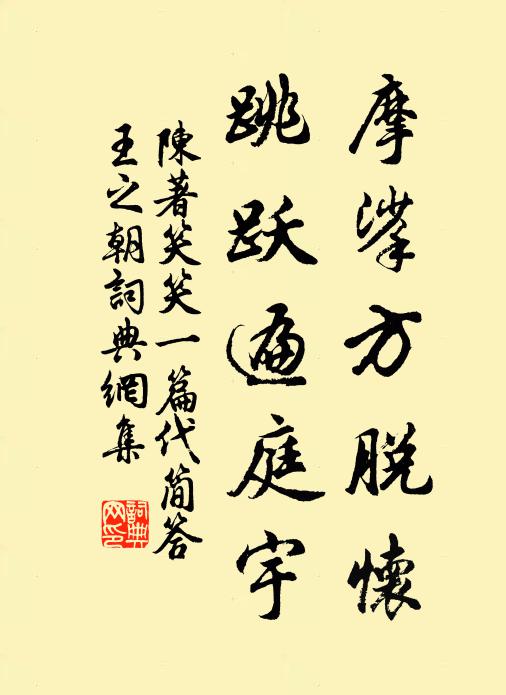 摩挲方脱懷
跳跃遍庭宇
陳著笑笑一篇代簡答
王之朝詞典網集
詞典网印